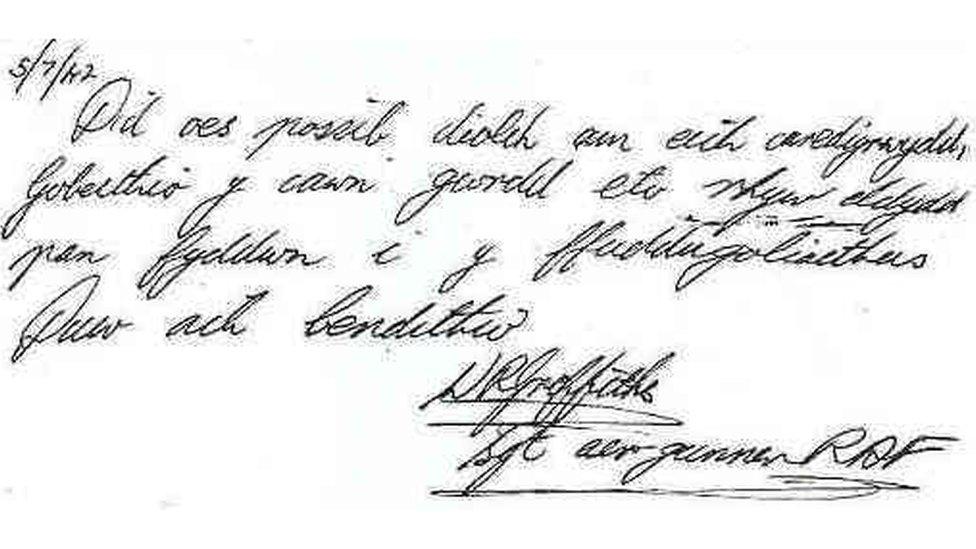 5/7/42
Did oes possib diolch am eich caredigrwydd,
Gobeithio y cawn gwrdd eto rhyw ddydd
pan fyddwn i y ffuddugoliaethus
Duw aich bendithio
WR Griffiths
Sgt aer-gunner RAF